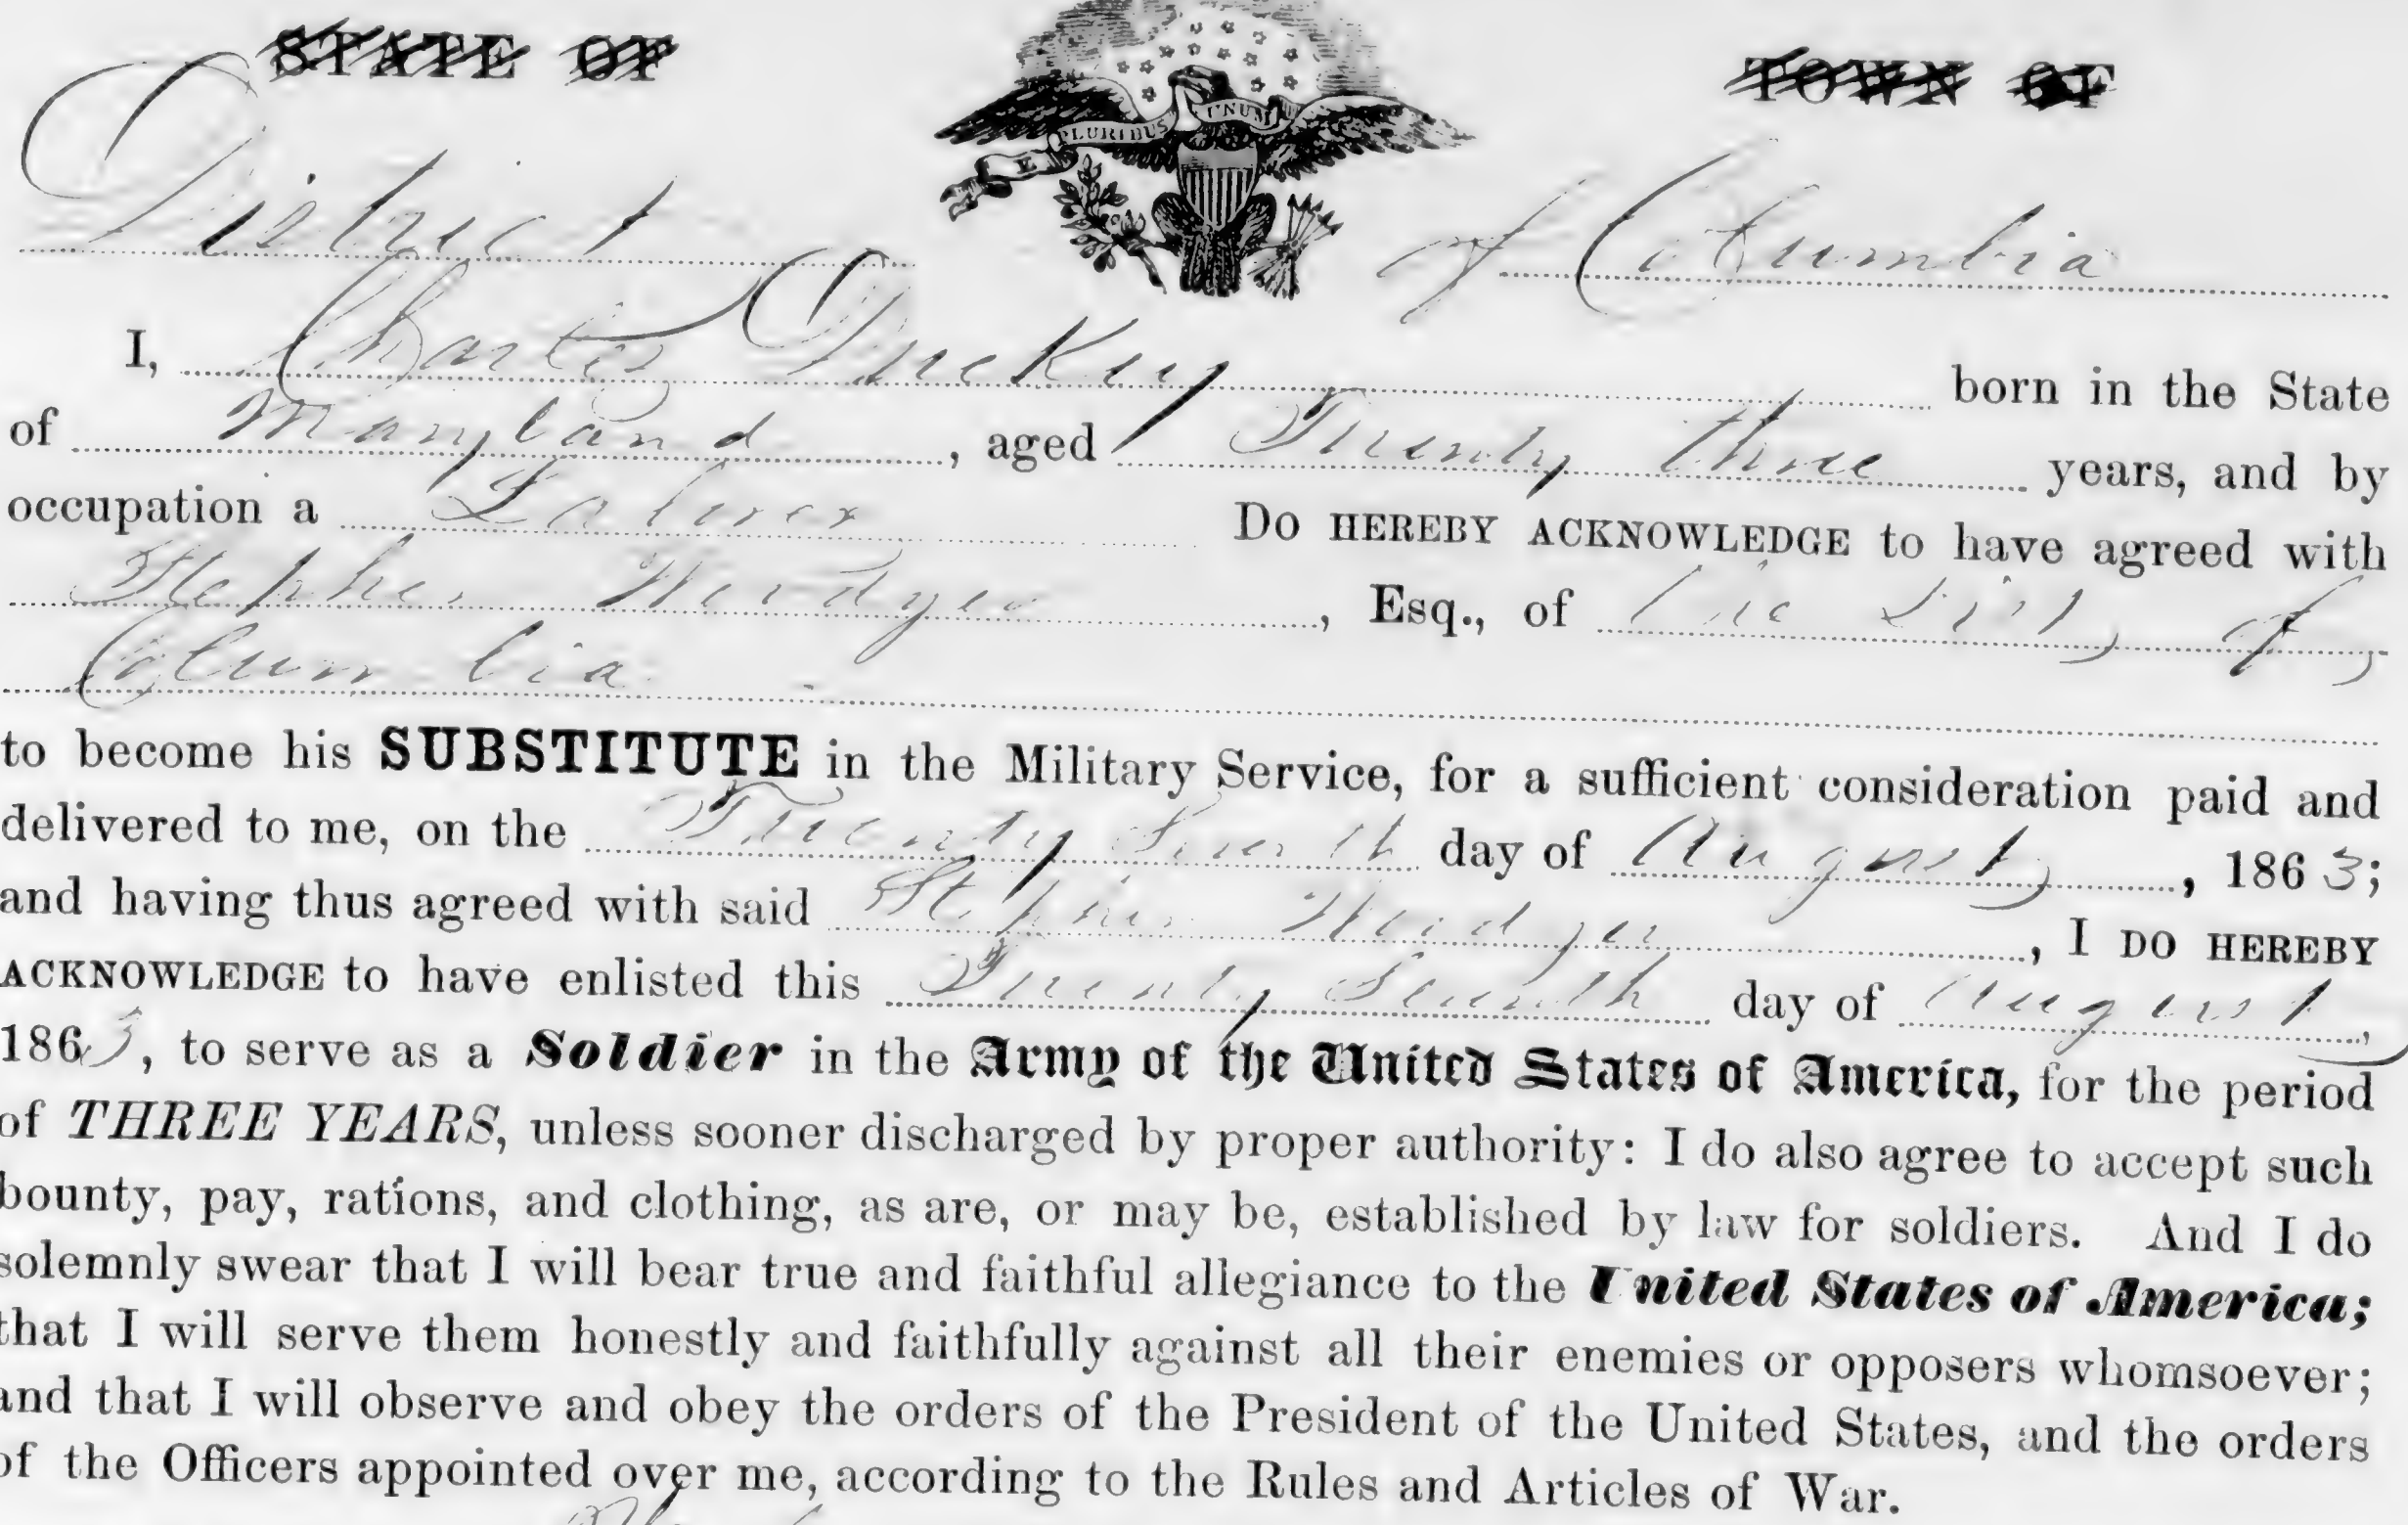 STATE OF TOWN OF
E PLURIBUS UNUM
District of Columbia
I, Charles Duckey born in the State
of Maryland, aged Twenty three years, and by
occupation a Laborer Do hereby acknowledge to have agreed with
Stephen, Esq., of of
Columbia
to become his SUBSTITUTE in the Military Service, for a sufficient consideration paid and
delivered to me, on the Twenty day of August, 1863;
and having thus agreed with said Stephen, I do hereby
acknowledge to have enlisted this Twenty day of August,
1863, to serve as a Soldier in the Army of the United States of America, for the period
of THREE YEARS, unless sooner discharged by proper authority: I do also agree to accept such
bounty, pay, rations, and clothing, as are, or may be, established by law for soldiers. And I do
solemnly swear that I will bear true and faithful allegiance to the United States of America;
that I will serve them honestly and faithfully against all their enemies or opposers whomsoever;
and that I will observe and obey the orders of the President of the United States, and the orders
of the Officers appointed over me, according to the Rules and Articles of War.